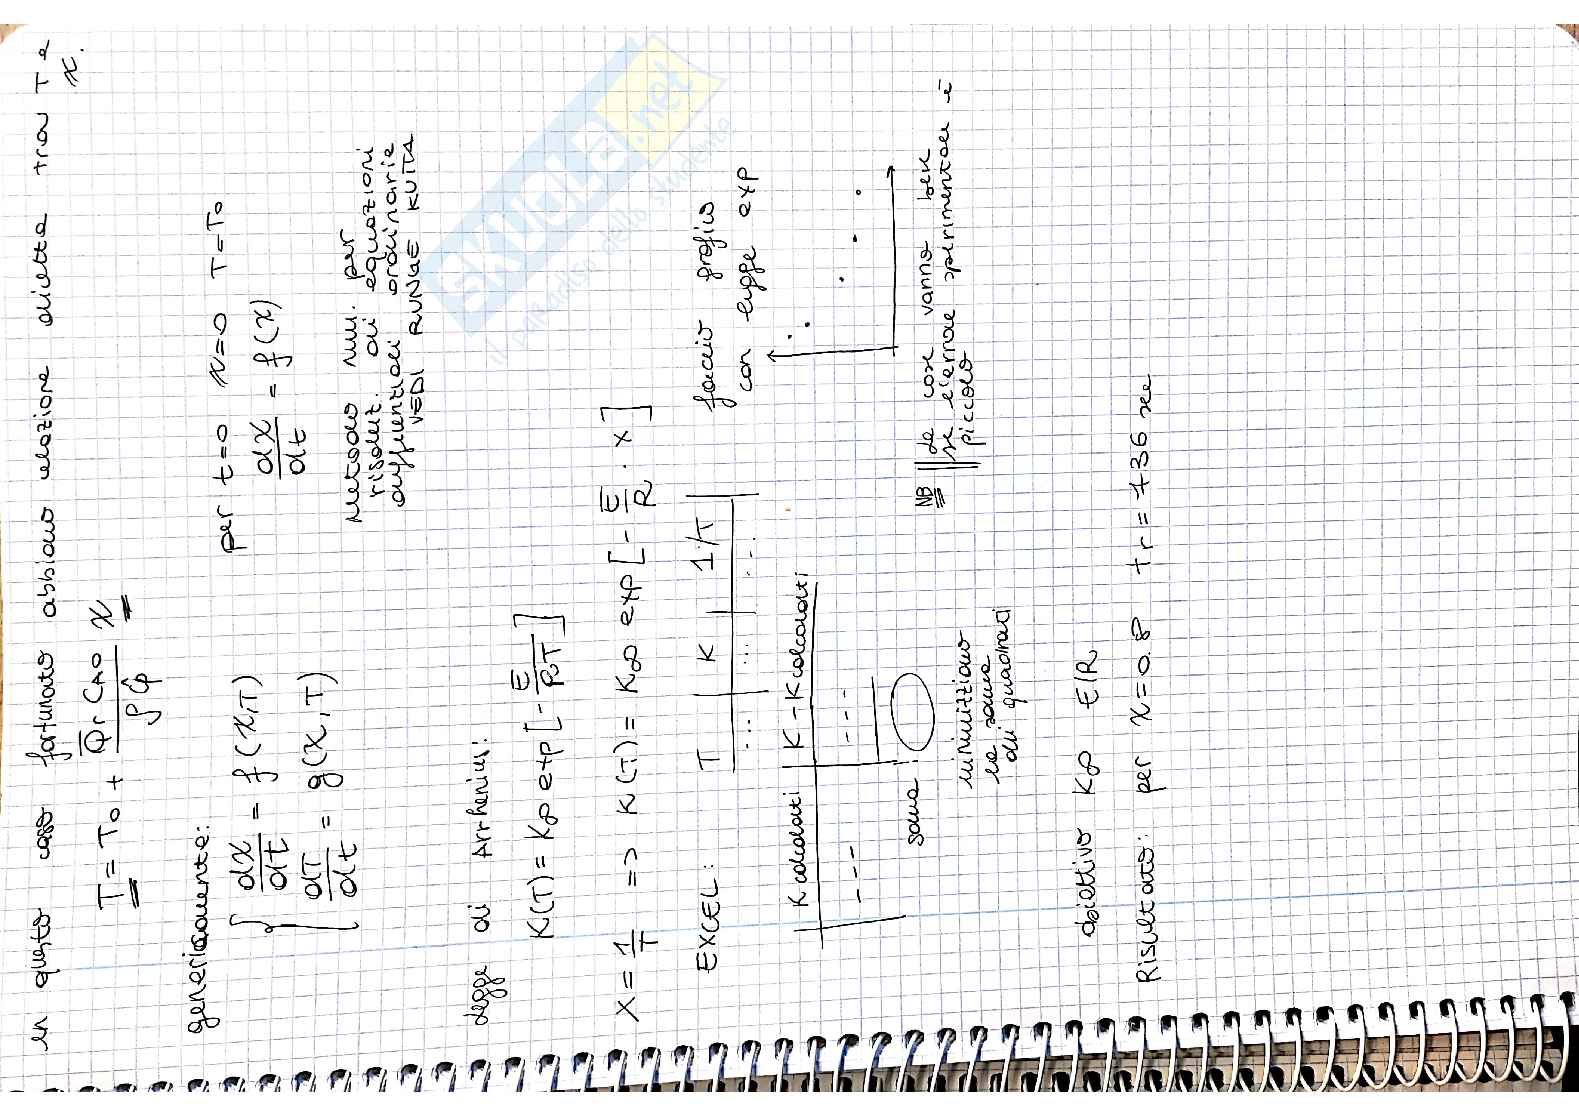 in questo caso fortunato abbiamo relazione diretta tra T e x.
T = T0 + Qr CA0 / ρ ĉp x
genericamente:
per t=0 x=0 T=T0
{ dx/dt = f(x,T)
dT/dt = g(x,T)
dx/dt = f(x)
Metodo num. per
risoluz. di equazioni
differenziali ordinarie
VEDI RUNGE KUTTA
Legge di Arrhenius:
K(T) = K∞ exp[-E/RT]
X = 1/T => K(T) = K∞ exp[-E/R · X]
EXCEL: T | K | 1/T
... ... ...
faccio grafico
con legge exp
K calcolati | K - K calcolati
--- ---
somma:
minimizziamo
la somma
dei quadrati
NB le cose vanno bene
se l'errore sperimentale è
piccolo
obiettivo K∞ E/R
Risultato: per x=0.8 tr = 736 sec
SKUOLA.net
il paradiso dello studente